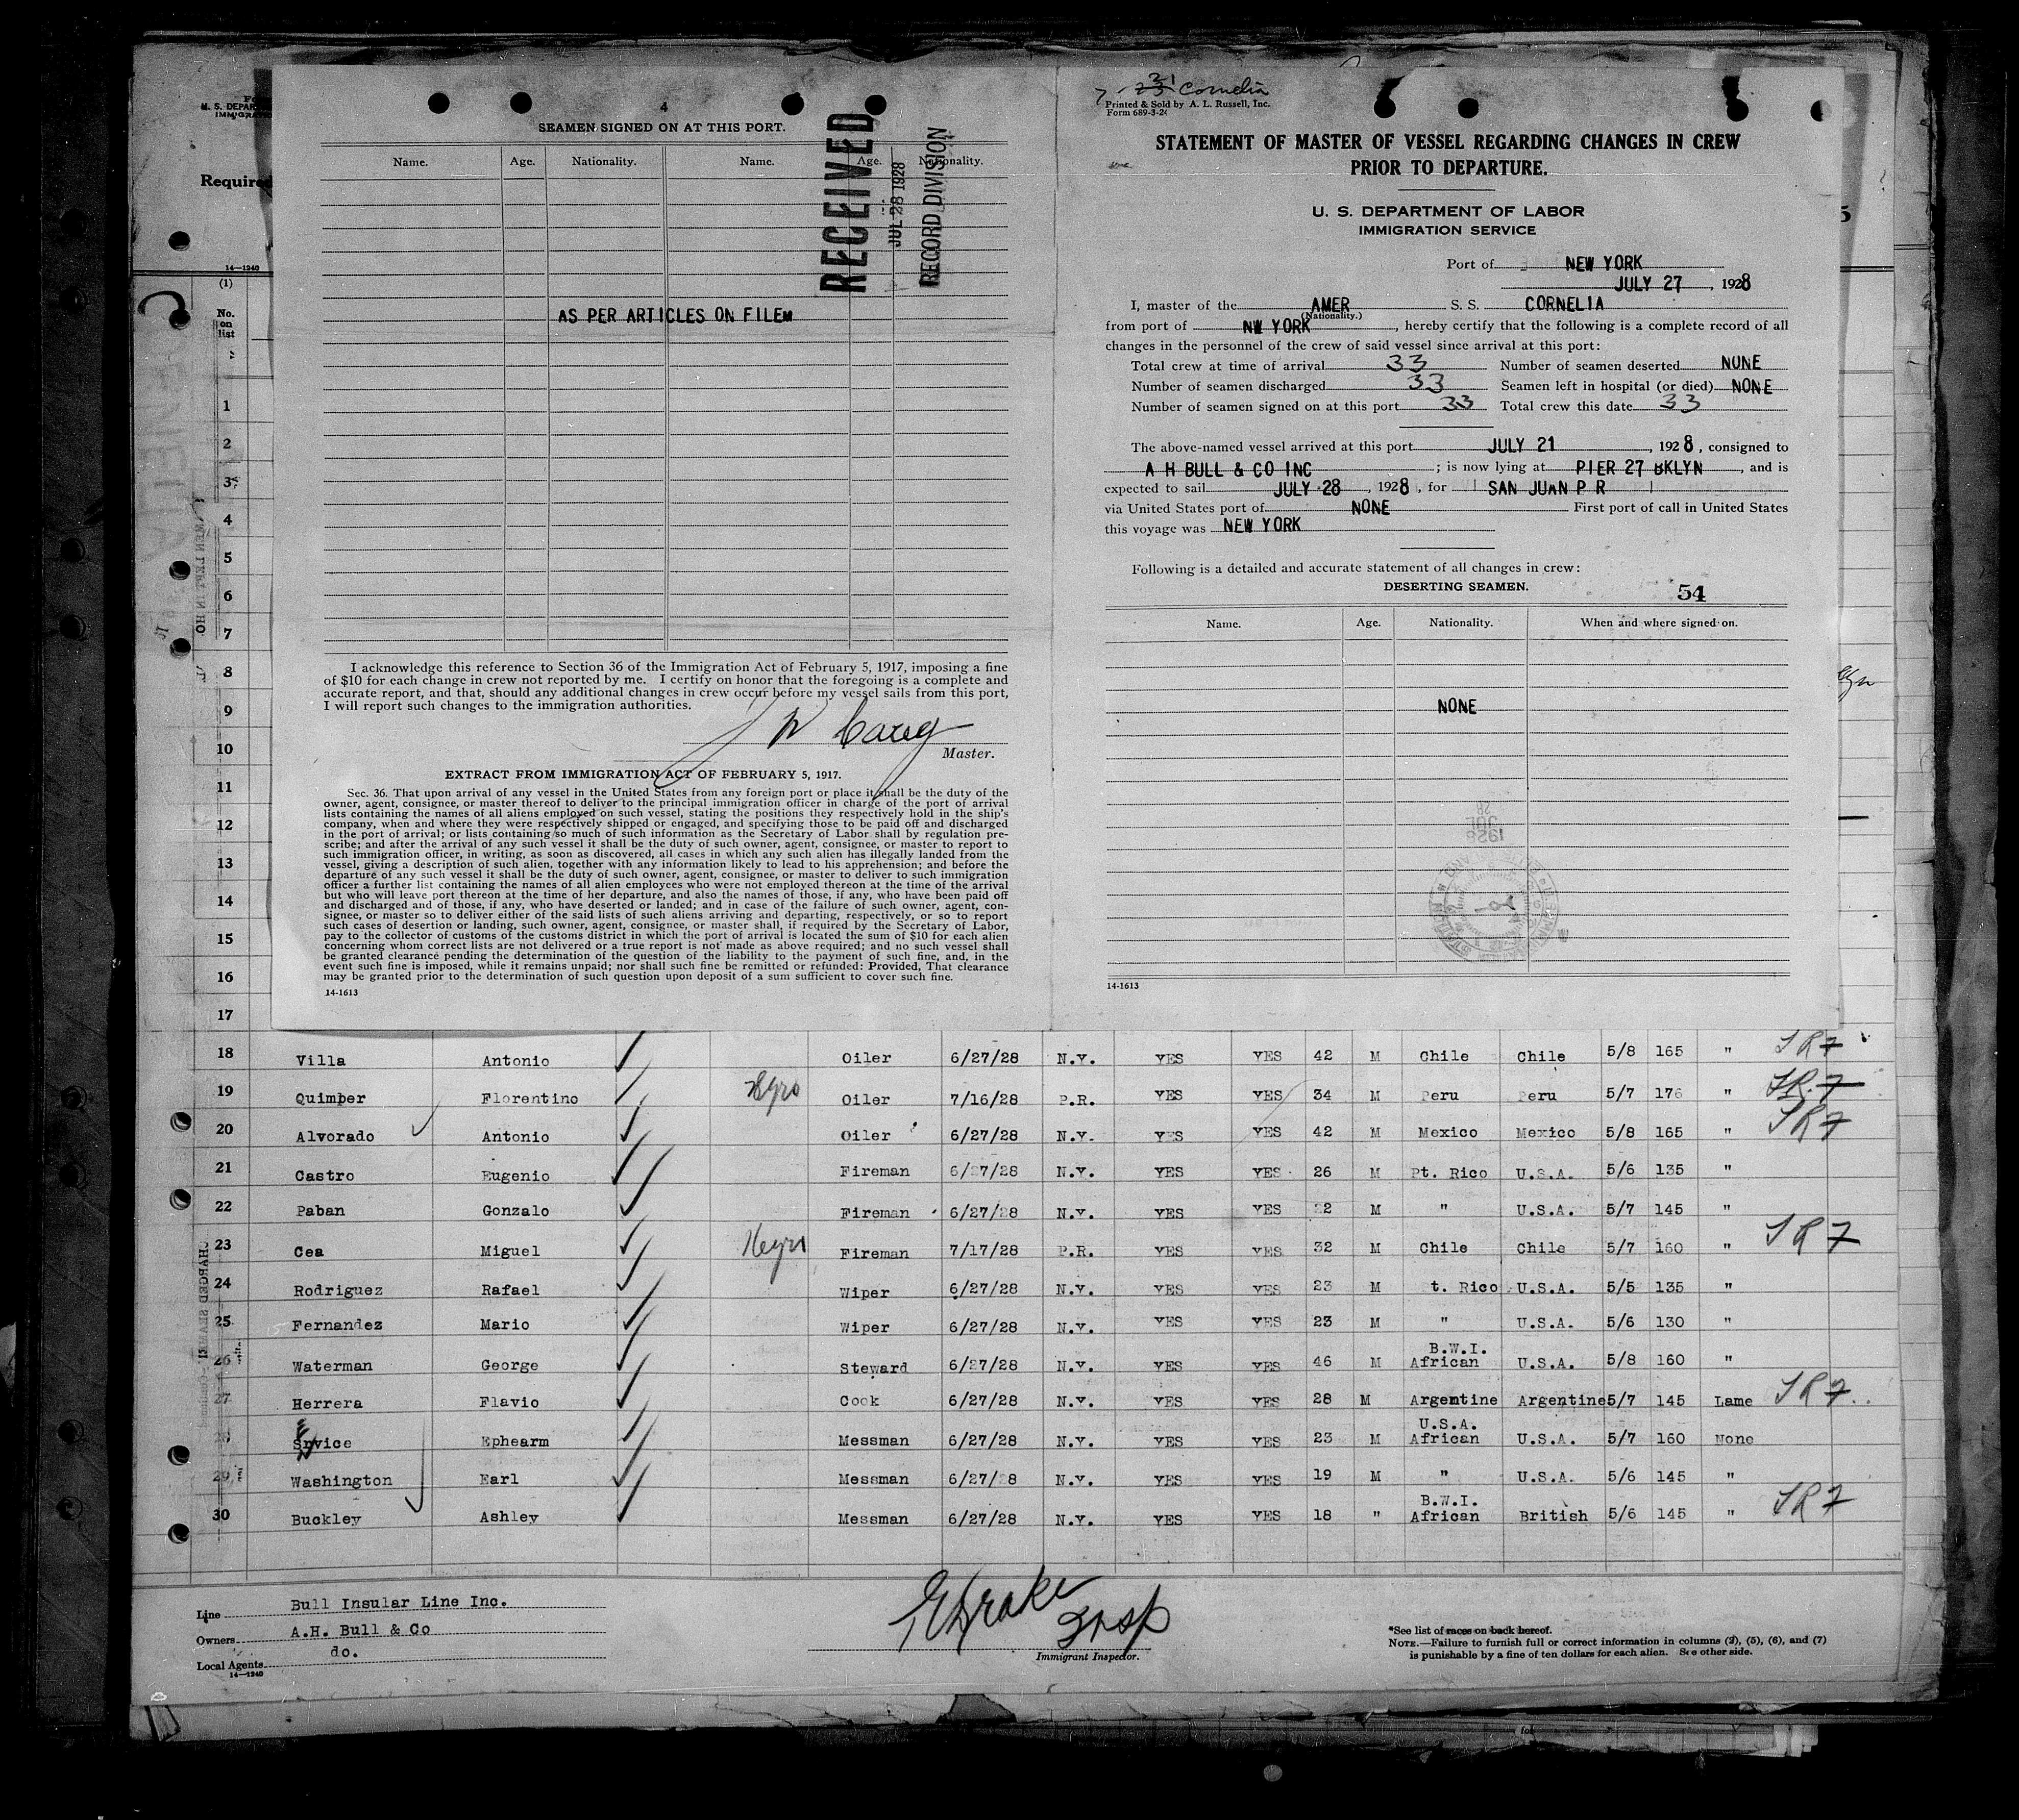 4
SEAMEN SIGNED ON AT THIS PORT.
Name. Age. Nationality. Name. Age. Nationality.
RECEIVED
JUL 28 1928
RECORD DIVISION
AS PER ARTICLES ON FILEM
I acknowledge this reference to Section 36 of the Immigration Act of February 5, 1917, imposing a fine
of $10 for each change in crew not reported by me. I certify on honor that the foregoing is a complete and
accurate report, and that, should any additional changes in crew occur before my vessel sails from this port,
I will report such changes to the immigration authorities.
J W Carey
Master.
EXTRACT FROM IMMIGRATION ACT OF FEBRUARY 5, 1917.
Sec. 36. That upon arrival of any vessel in the United States from any foreign port or place it shall be the duty of the
owner, agent, consignee, or master thereof to deliver to the principal immigration officer in charge of the port of arrival
lists containing the names of all aliens employed on such vessel, stating the positions they respectively hold in the ship's
company, when and where they were respectively shipped or engaged, and specifying those to be paid off and discharged
in the port of arrival; or lists containing so much of such information as the Secretary of Labor shall by regulation pre-
scribe; and after the arrival of any such vessel it shall be the duty of such owner, agent, consignee, or master to report to
such immigration officer, in writing, as soon as discovered, all cases in which any such alien has illegally landed from the
vessel, giving a description of such alien, together with any information likely to lead to his apprehension; and before the
departure of any such vessel it shall be the duty of such owner, agent, consignee, or master to deliver to such immigration
officer a further list containing the names of all alien employees who were not employed thereon at the time of the arrival
but who will leave port thereon at the time of her departure, and also the names of those, if any, who have been paid off
and discharged and of those, if any, who have deserted or landed; and in case of the failure of such owner, agent, con-
signee, or master so to deliver either of the said lists of such aliens arriving and departing, respectively, or so to report
such cases of desertion or landing, such owner, agent, consignee, or master shall, if required by the Secretary of Labor,
pay to the collector of customs of the customs district in which the port of arrival is located the sum of $10 for each alien
concerning whom correct lists are not delivered or a true report is not made as above required; and no such vessel shall
be granted clearance pending the determination of the question of the liability to the payment of such fine, and, in the
event such fine is imposed, while it remains unpaid; nor shall such fine be remitted or refunded: Provided, That clearance
may be granted prior to the determination of such question upon deposit of a sum sufficient to cover such fine.
14-1613
Cornelia
Printed & Sold by A. L. Russell, Inc.
Form 689-3-24
STATEMENT OF MASTER OF VESSEL REGARDING CHANGES IN CREW
PRIOR TO DEPARTURE.
U. S. DEPARTMENT OF LABOR
IMMIGRATION SERVICE
Port of NEW YORK
JULY 27, 1928
I, master of the AMER S. S. CORNELIA
(Nationality.)
from port of NW YORK, hereby certify that the following is a complete record of all
changes in the personnel of the crew of said vessel since arrival at this port:
Total crew at time of arrival 33 Number of seamen deserted NONE
Number of seamen discharged 33 Seamen left in hospital (or died) NONE
Number of seamen signed on at this port 33 Total crew this date 33
The above-named vessel arrived at this port JULY 21, 1928, consigned to
A H BULL & CO INC; is now lying at PIER 27 BKLYN, and is
expected to sail JULY 28, 1928, for SAN JUAN P R
via United States port of NONE First port of call in United States
this voyage was NEW YORK
Following is a detailed and accurate statement of all changes in crew:
DESERTING SEAMEN. 54
Name. Age. Nationality. When and where signed on.
NONE
14-1613
Required
14—1240
(1)
No.
on
list
1
2
3
4
5
6
7
8
9
10
11
12
13
14
15
16
17
18 Villa Antonio Oiler 6/27/28 N.Y. YES YES 42 M Chile Chile 5/8 165 " SR7
19 Quimper Florentino Negro Oiler 7/16/28 P.R. YES YES 34 M Peru Peru 5/7 176 " SR7
20 Alvorado Antonio Oiler 6/27/28 N.Y. YES YES 42 M Mexico Mexico 5/8 165 " SR7
21 Castro Eugenio Fireman 6/27/28 N.Y. YES YES 26 M Pt. Rico U.S.A. 5/6 135 "
22 Paban Gonzalo Fireman 6/27/28 N.Y. YES YES 22 M " U.S.A. 5/7 145 "
23 Cea Miguel Negro Fireman 7/17/28 P.R. YES YES 32 M Chile Chile 5/7 160 " SR7
24 Rodriguez Rafael Wiper 6/27/28 N.Y. YES YES 23 M t. Rico U.S.A. 5/5 135 "
25 Fernandez Mario Wiper 6/27/28 N.Y. YES YES 23 M " U.S.A. 5/6 130 "
26 Waterman George Steward 6/27/28 N.Y. YES YES 46 M B.W.I. African U.S.A. 5/8 160 "
27 Herrera Flavio Cook 6/27/28 N.Y. YES YES 28 M Argentine Argentine 5/7 145 Lame SR7
28 Srvice Ephearm Messman 6/27/28 N.Y. YES YES 23 M U.S.A. African U.S.A. 5/7 160 None
29 Washington Earl Messman 6/27/28 N.Y. YES YES 19 M " U.S.A. 5/6 145 "
30 Buckley Ashley Messman 6/27/28 N.Y. YES YES 18 " B.W.I. African British 5/6 145 " SR7
Line Bull Insular Line Inc.
Owners A.H. Bull & Co
Local Agents do.
14—1240
Drake
Insp
Immigrant Inspector.
*See list of races on back hereof.
NOTE.—Failure to furnish full or correct information in columns (2), (5), (6), and (7)
is punishable by a fine of ten dollars for each alien. See other side.